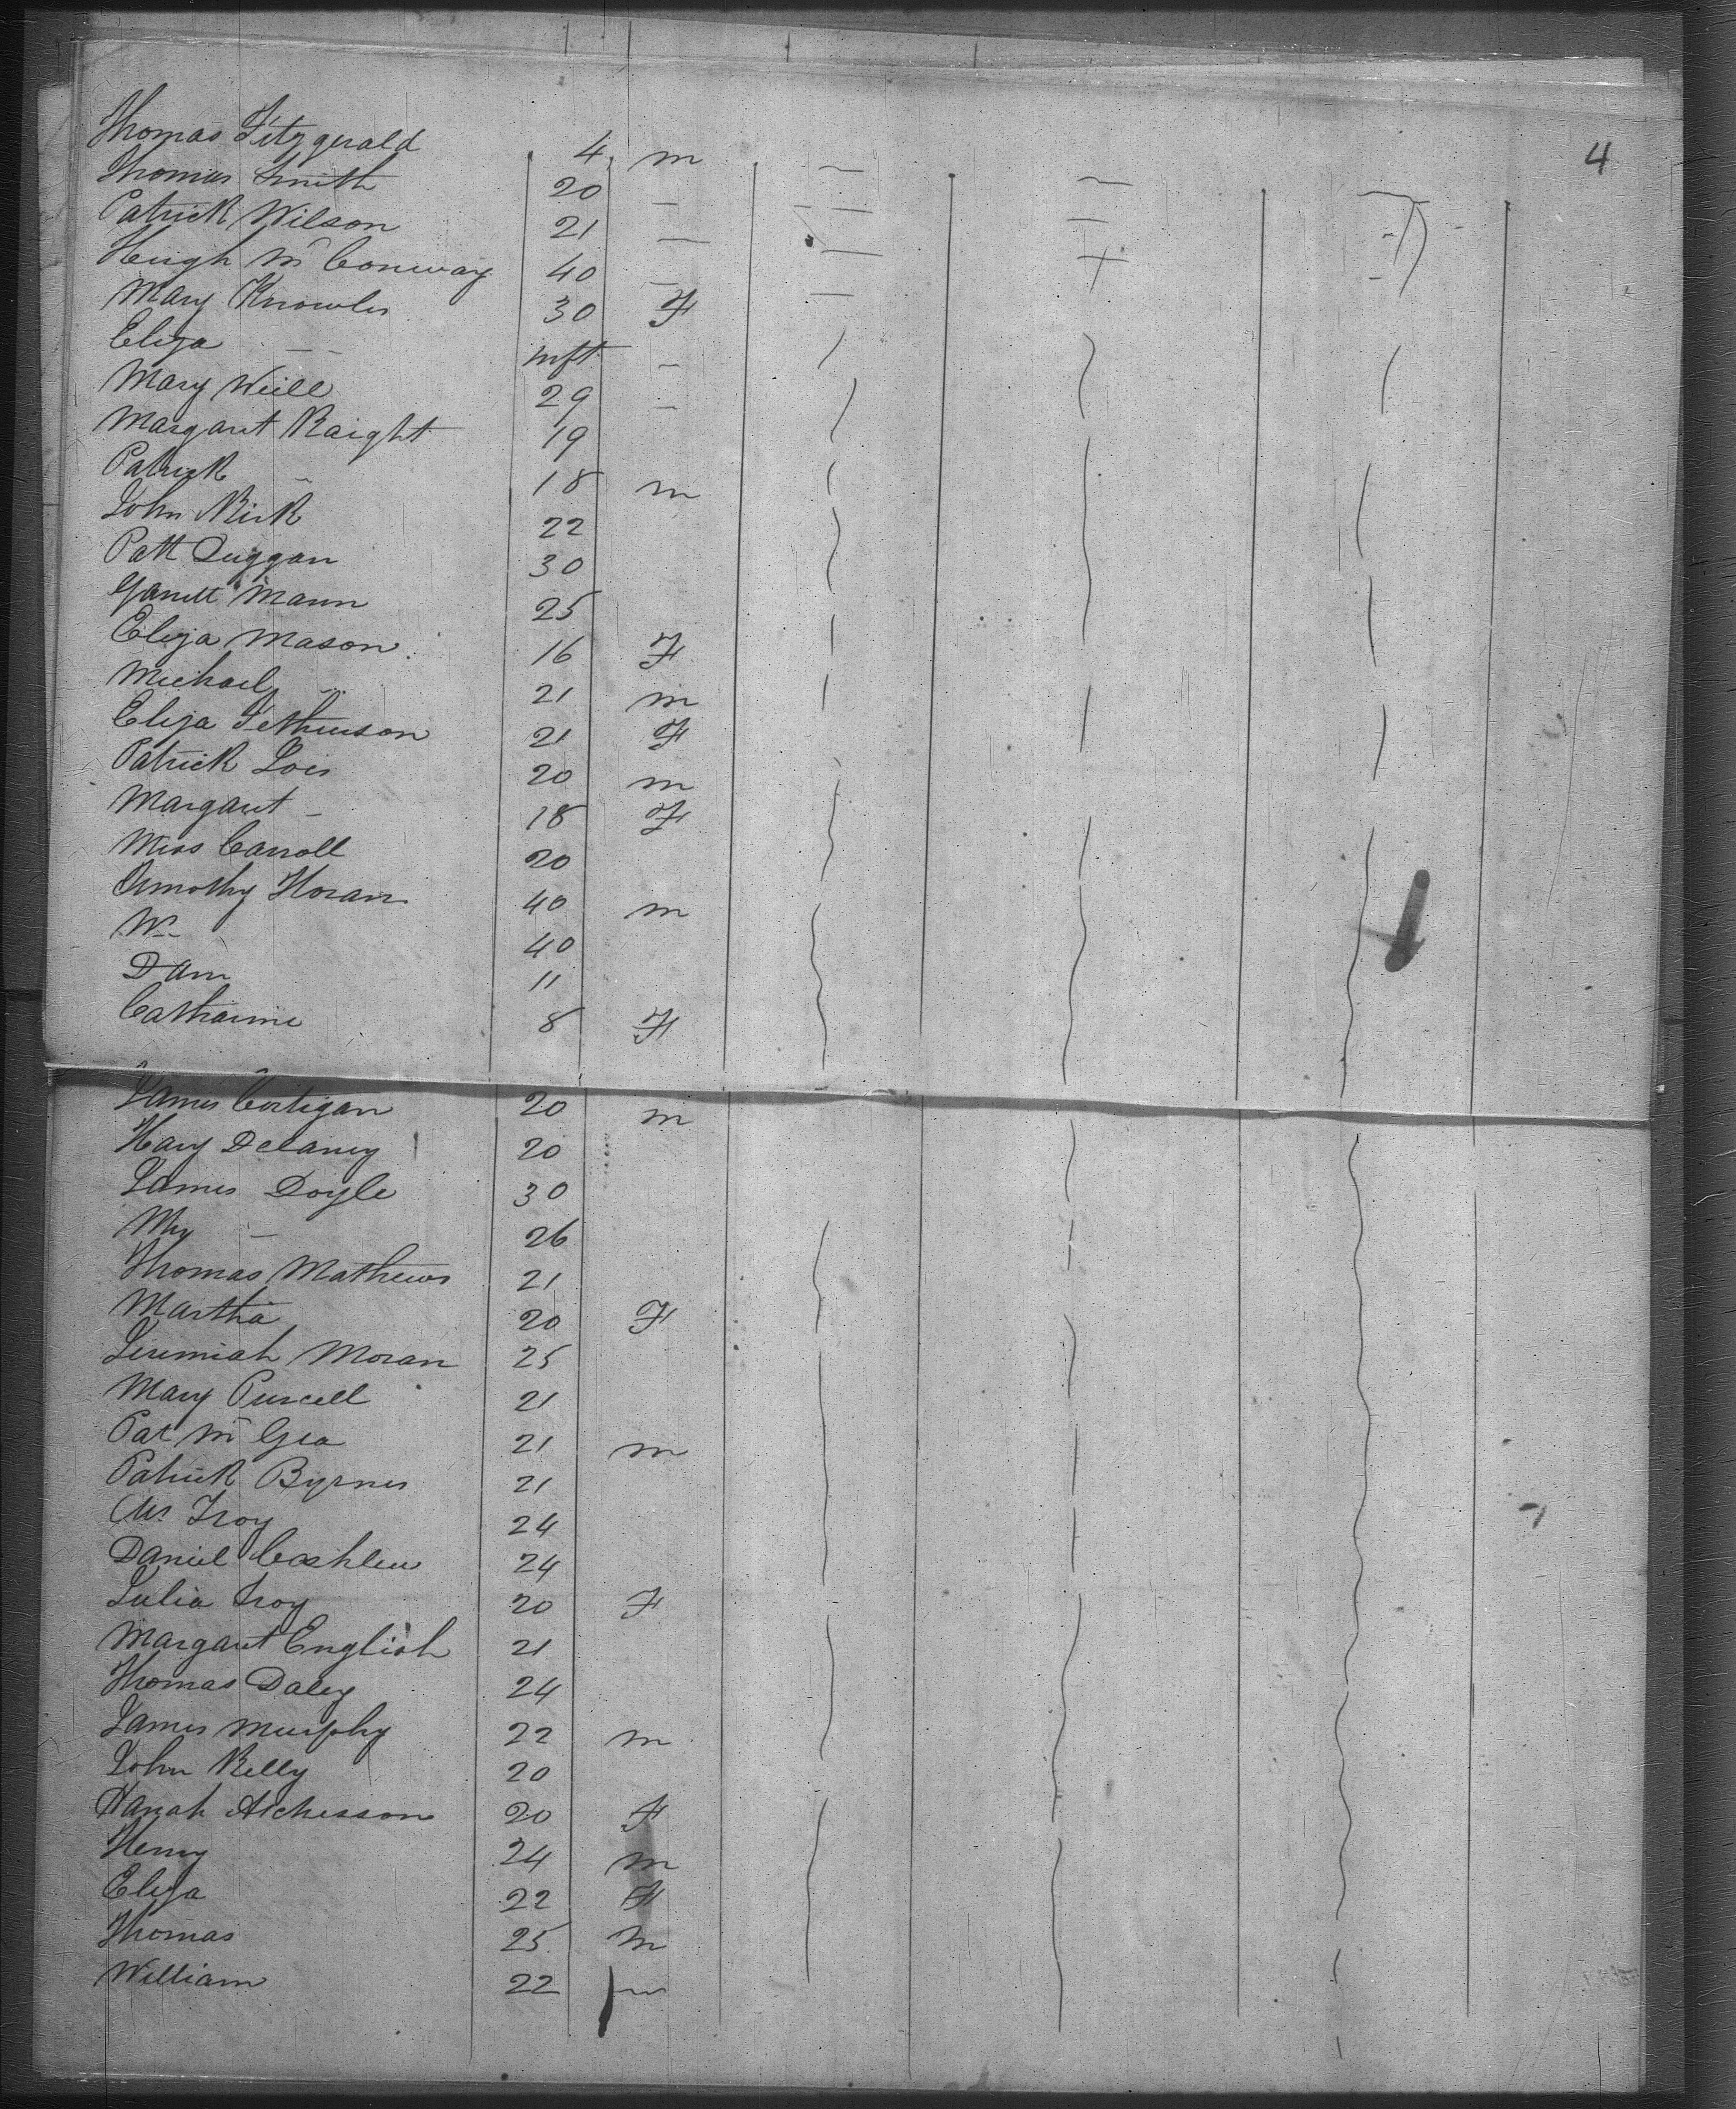 4
Thomas Fitzgerald 4 m
Thomas Smith 20 –
Patrick Wilson 21 –
Hugh Mc Conway 40 –
Mary Knowles 30 F
Eliza – – inft –
Mary Weill 29 –
Margaret Knight 19
Patrick – 18 m
John Kirk 22
Patt Duggan 30
Garrett Mann 25
Eliza Mason 16 F
Michael – 21 m
Eliza 21 F
Patrick 20 m
Margaret – 18 F
Miss Carroll 20
Timothy Horan 40 m
Wm 40
Dan 11
Catharine 8 F
James Costigan 20 m
Hary Delaney 20
James Doyle 30
My – 26
Thomas Mathews 21
Martha 20 F
Jeremiah Moran 25
Mary Purcell 21
Pat Mc Gea 21 m
Patrick Byrnes 21
Mr Troy 24
Daniel Coshlen 24
Julia Troy 20 F
Margaret English 21
Thomas Daley 24
James Murphy 22 m
John Kelly 20
Hanah Aichesson 20 F
Henry 24 m
Eliza 22 F
Thomas 25 m
William 22 m